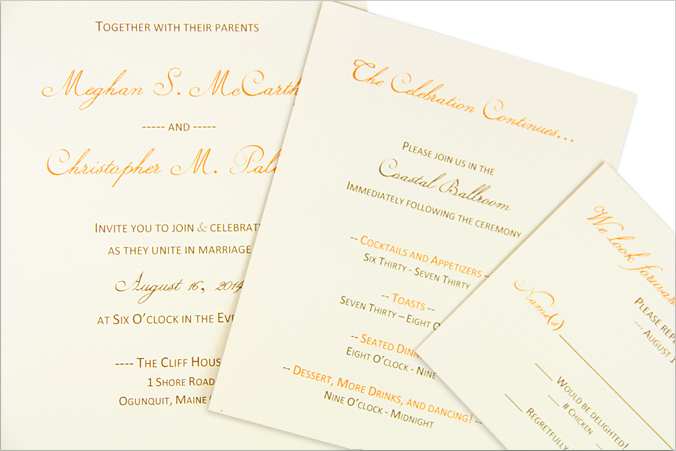 Together with their parents
Meghan S. McCarth
----- and -----
Christopher M. Pal
Invite you to join & celebrat
as they unite in marriage
August 16, 2014
at Six O'clock in the Eve
---- The Cliff Hous
1 Shore Road
Ogunquit, Maine
The Celebration Continues...
Please join us in the
Coastal Ballroom
Immediately following the ceremony
-- Cocktails and Appetizers --
Six Thirty - Seven Thirty
-- Toasts --
Seven Thirty – Eight O
-- Seated Dinn
Eight O'clock - Nine
-- Dessert, More Drinks, and dancing! --
Nine O'clock - Midnight
We look forwar
Please rep
--- August 1
Name(s)
Would be delighted!
# Chicken
Regretfully